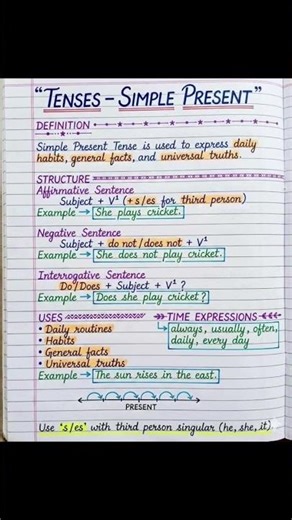 “TENSES – SIMPLE PRESENT”
DEFINITION
Simple Present Tense is used to express daily
habits, general facts, and universal truths.
STRUCTURE
Affirmative Sentence
Subject + V¹ (+ s/es for third person)
Example → She plays cricket.
Negative Sentence
Subject + do not/does not + V¹
Example → She does not play cricket.
Interrogative Sentence
Do/Does + Subject + V¹ ?
Example → Does she play cricket?
USES
• Daily routines
• Habits
• General facts
• Universal truths
TIME EXPRESSIONS
always, usually, often,
daily, every day
Example → The sun rises in the east.
PRESENT
Use 's/es' with third person singular (he, she, it).